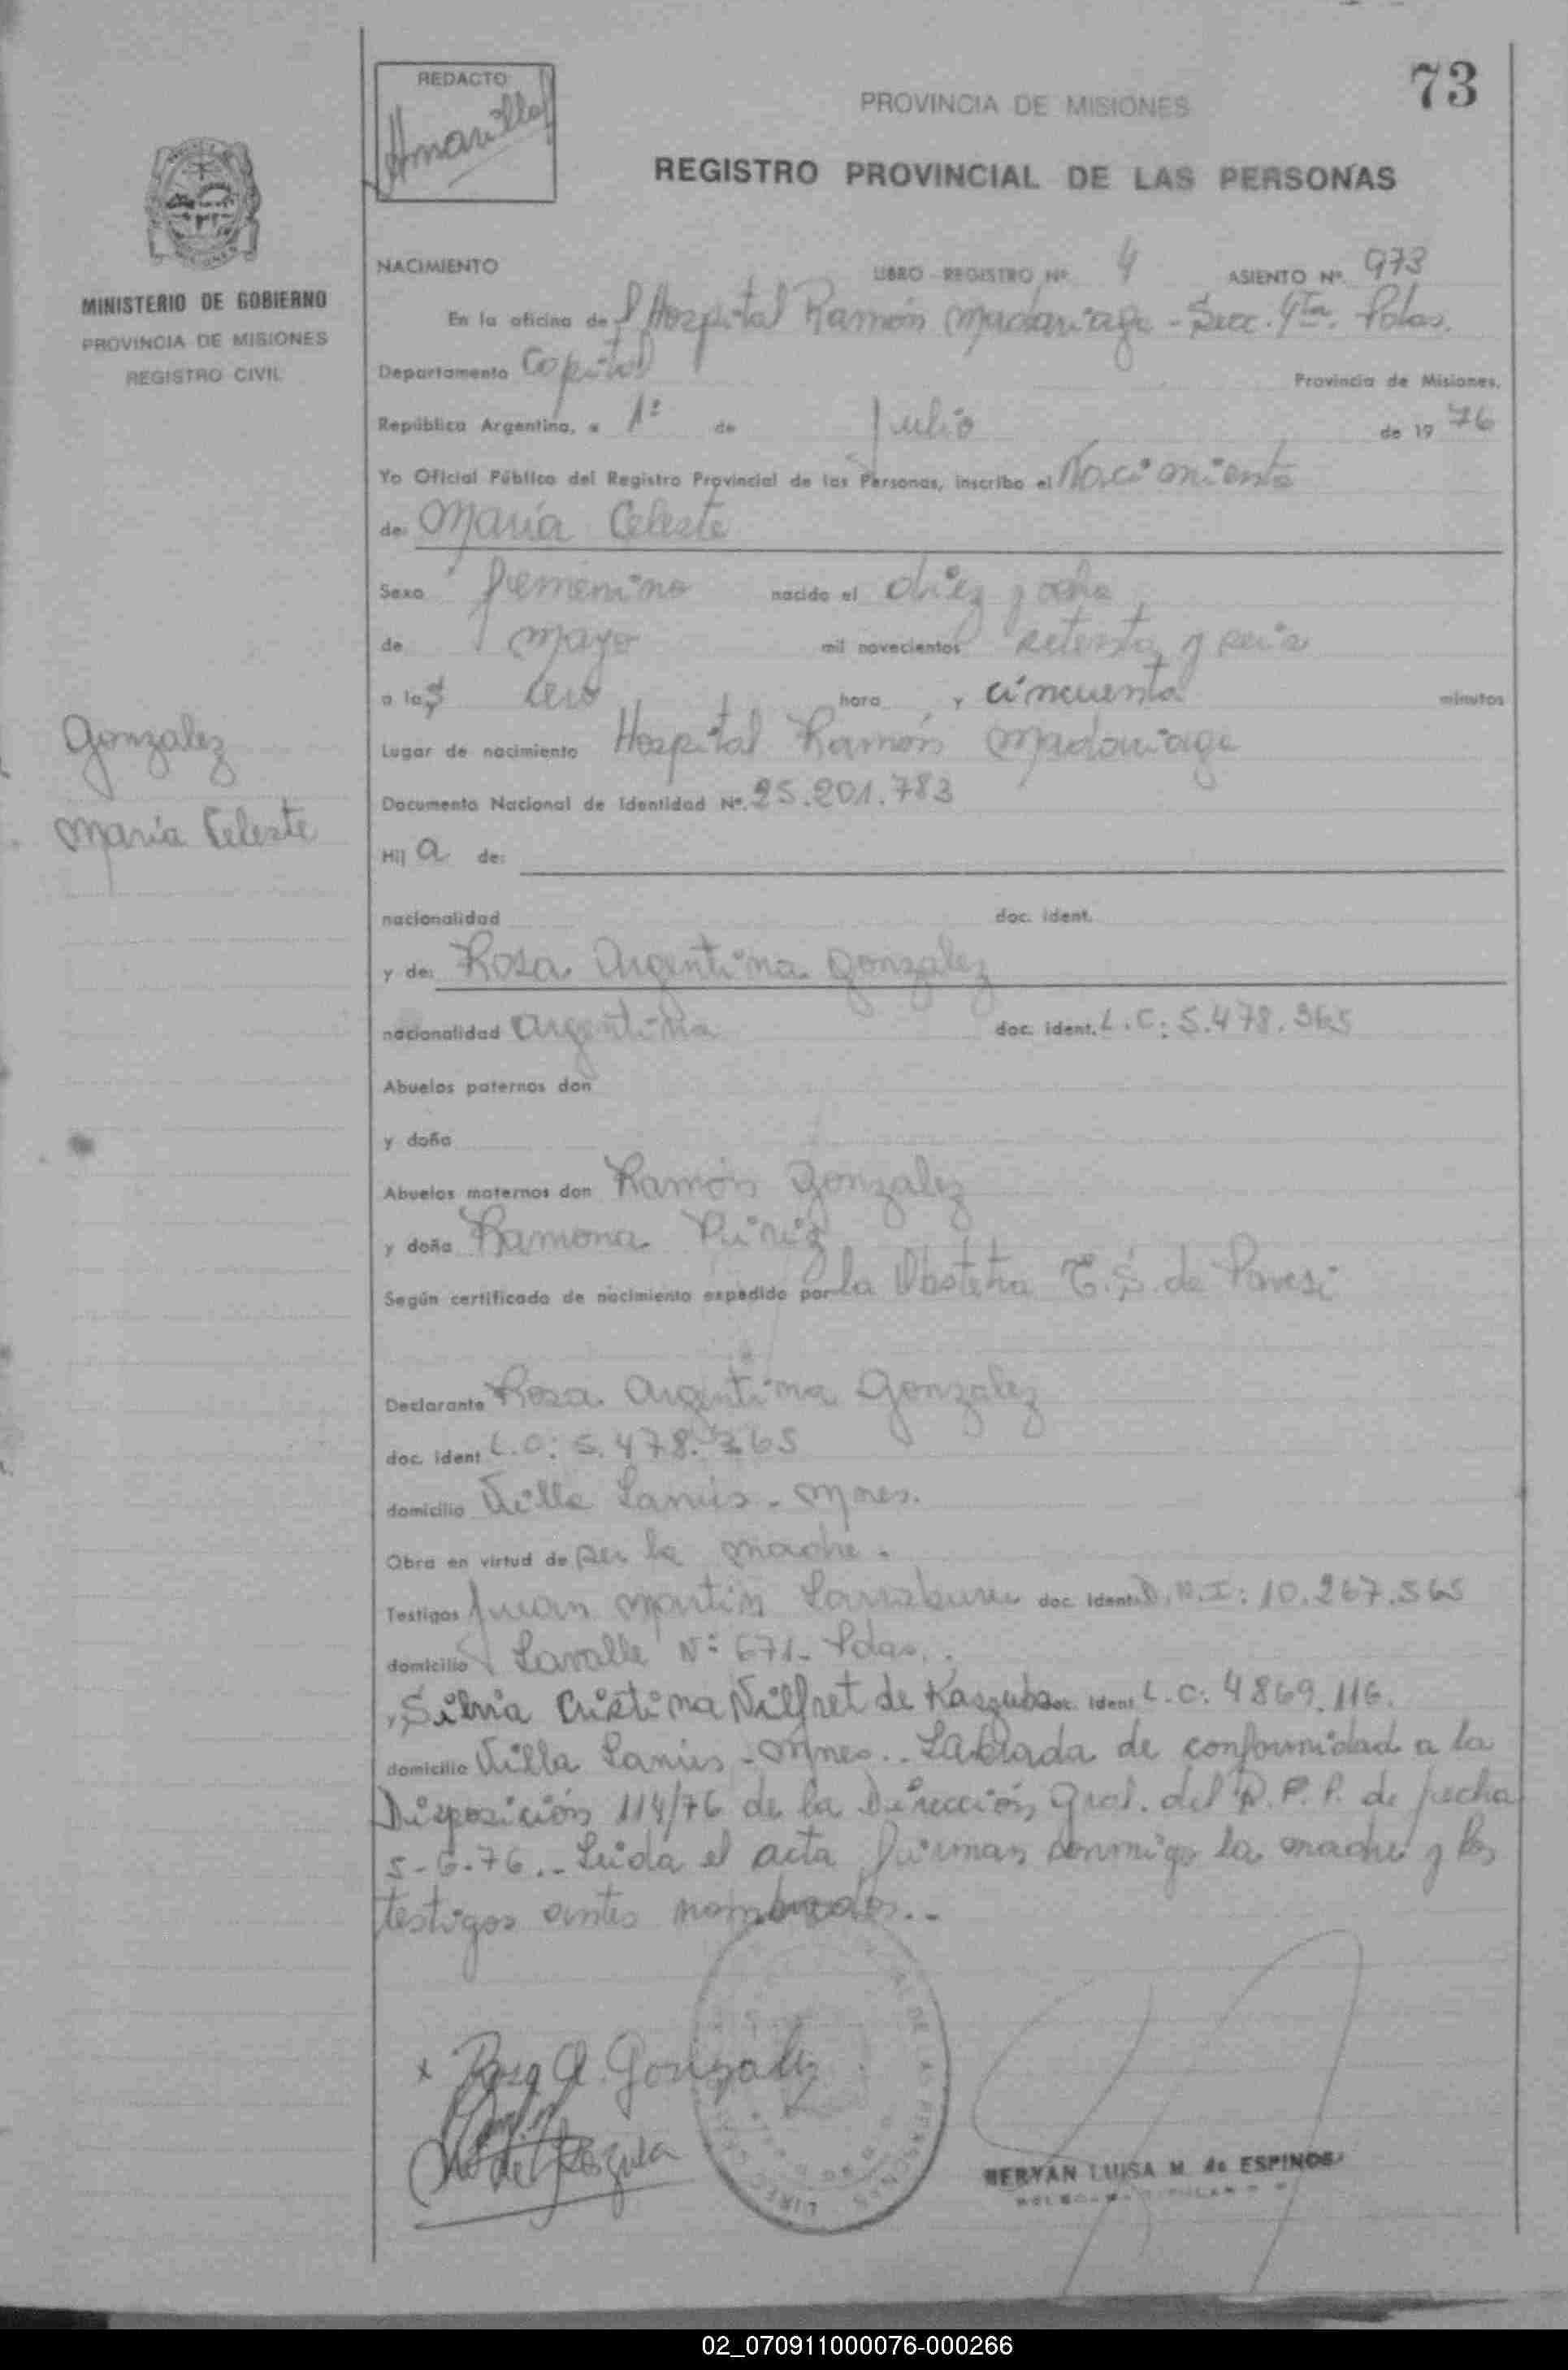 73
REDACTO
Amarilla
PROVINCIA DE MISIONES
REGISTRO PROVINCIAL DE LAS PERSONAS
MINISTERIO DE GOBIERNO
PROVINCIA DE MISIONES
REGISTRO CIVIL
NACIMIENTO LIBRO - REGISTRO Nº 4 ASIENTO Nº 973
En la oficina de Hospital Ramón Madariaga - Secc. 4ta. Pdas.
Departamento Capital Provincia de Misiones,
República Argentina, a 1º de Julio de 19 76
Yo Oficial Público del Registro Provincial de las Personas, inscribo el Nacimiento
de: María Celeste
Sexo femenino nacido el diez y ocho
de mayo mil novecientos setenta y seis
a las cero hora y cincuenta minutos
Gonzalez
María Celeste
Lugar de nacimiento Hospital Ramón Madariaga
Documento Nacional de Identidad Nº. 25.201.783
Hij a de:
nacionalidad doc. ident.
y de: Rosa Argentina Gonzalez
nacionalidad argentina doc. ident. L.C: 5.478.365
Abuelos paternos don
y doña
Abuelos maternos don Ramón Gonzalez
y doña Ramona
Según certificado de nacimiento expedido por la Obstetra T.S. de Pavesi
Declarante Rosa Argentina Gonzalez
doc. ident L.C: 5.478.365
domicilio Villa Lanús - Mnes.
Obra en virtud de ser la madre.
Testigos Juan Martín doc. ident. D.N.I: 10.267.565
domicilio Lavalle Nº 671 - Pdas.
y Silvia Cristina Vilfret de Kaszuba doc. ident L.C: 4869.116.
domicilio Villa Lanús - Mnes.. Labrada de conformidad a la
Disposición 114/76 de la Dirección Gral. del R.P.P. de fecha
5-6-76.. Leída el acta firman conmigo la madre y los
testigos antes nombrados..-
x Rosa A. Gonzalez
NERYAN LUISA M. de ESPINOSA
02_070911000076-000266